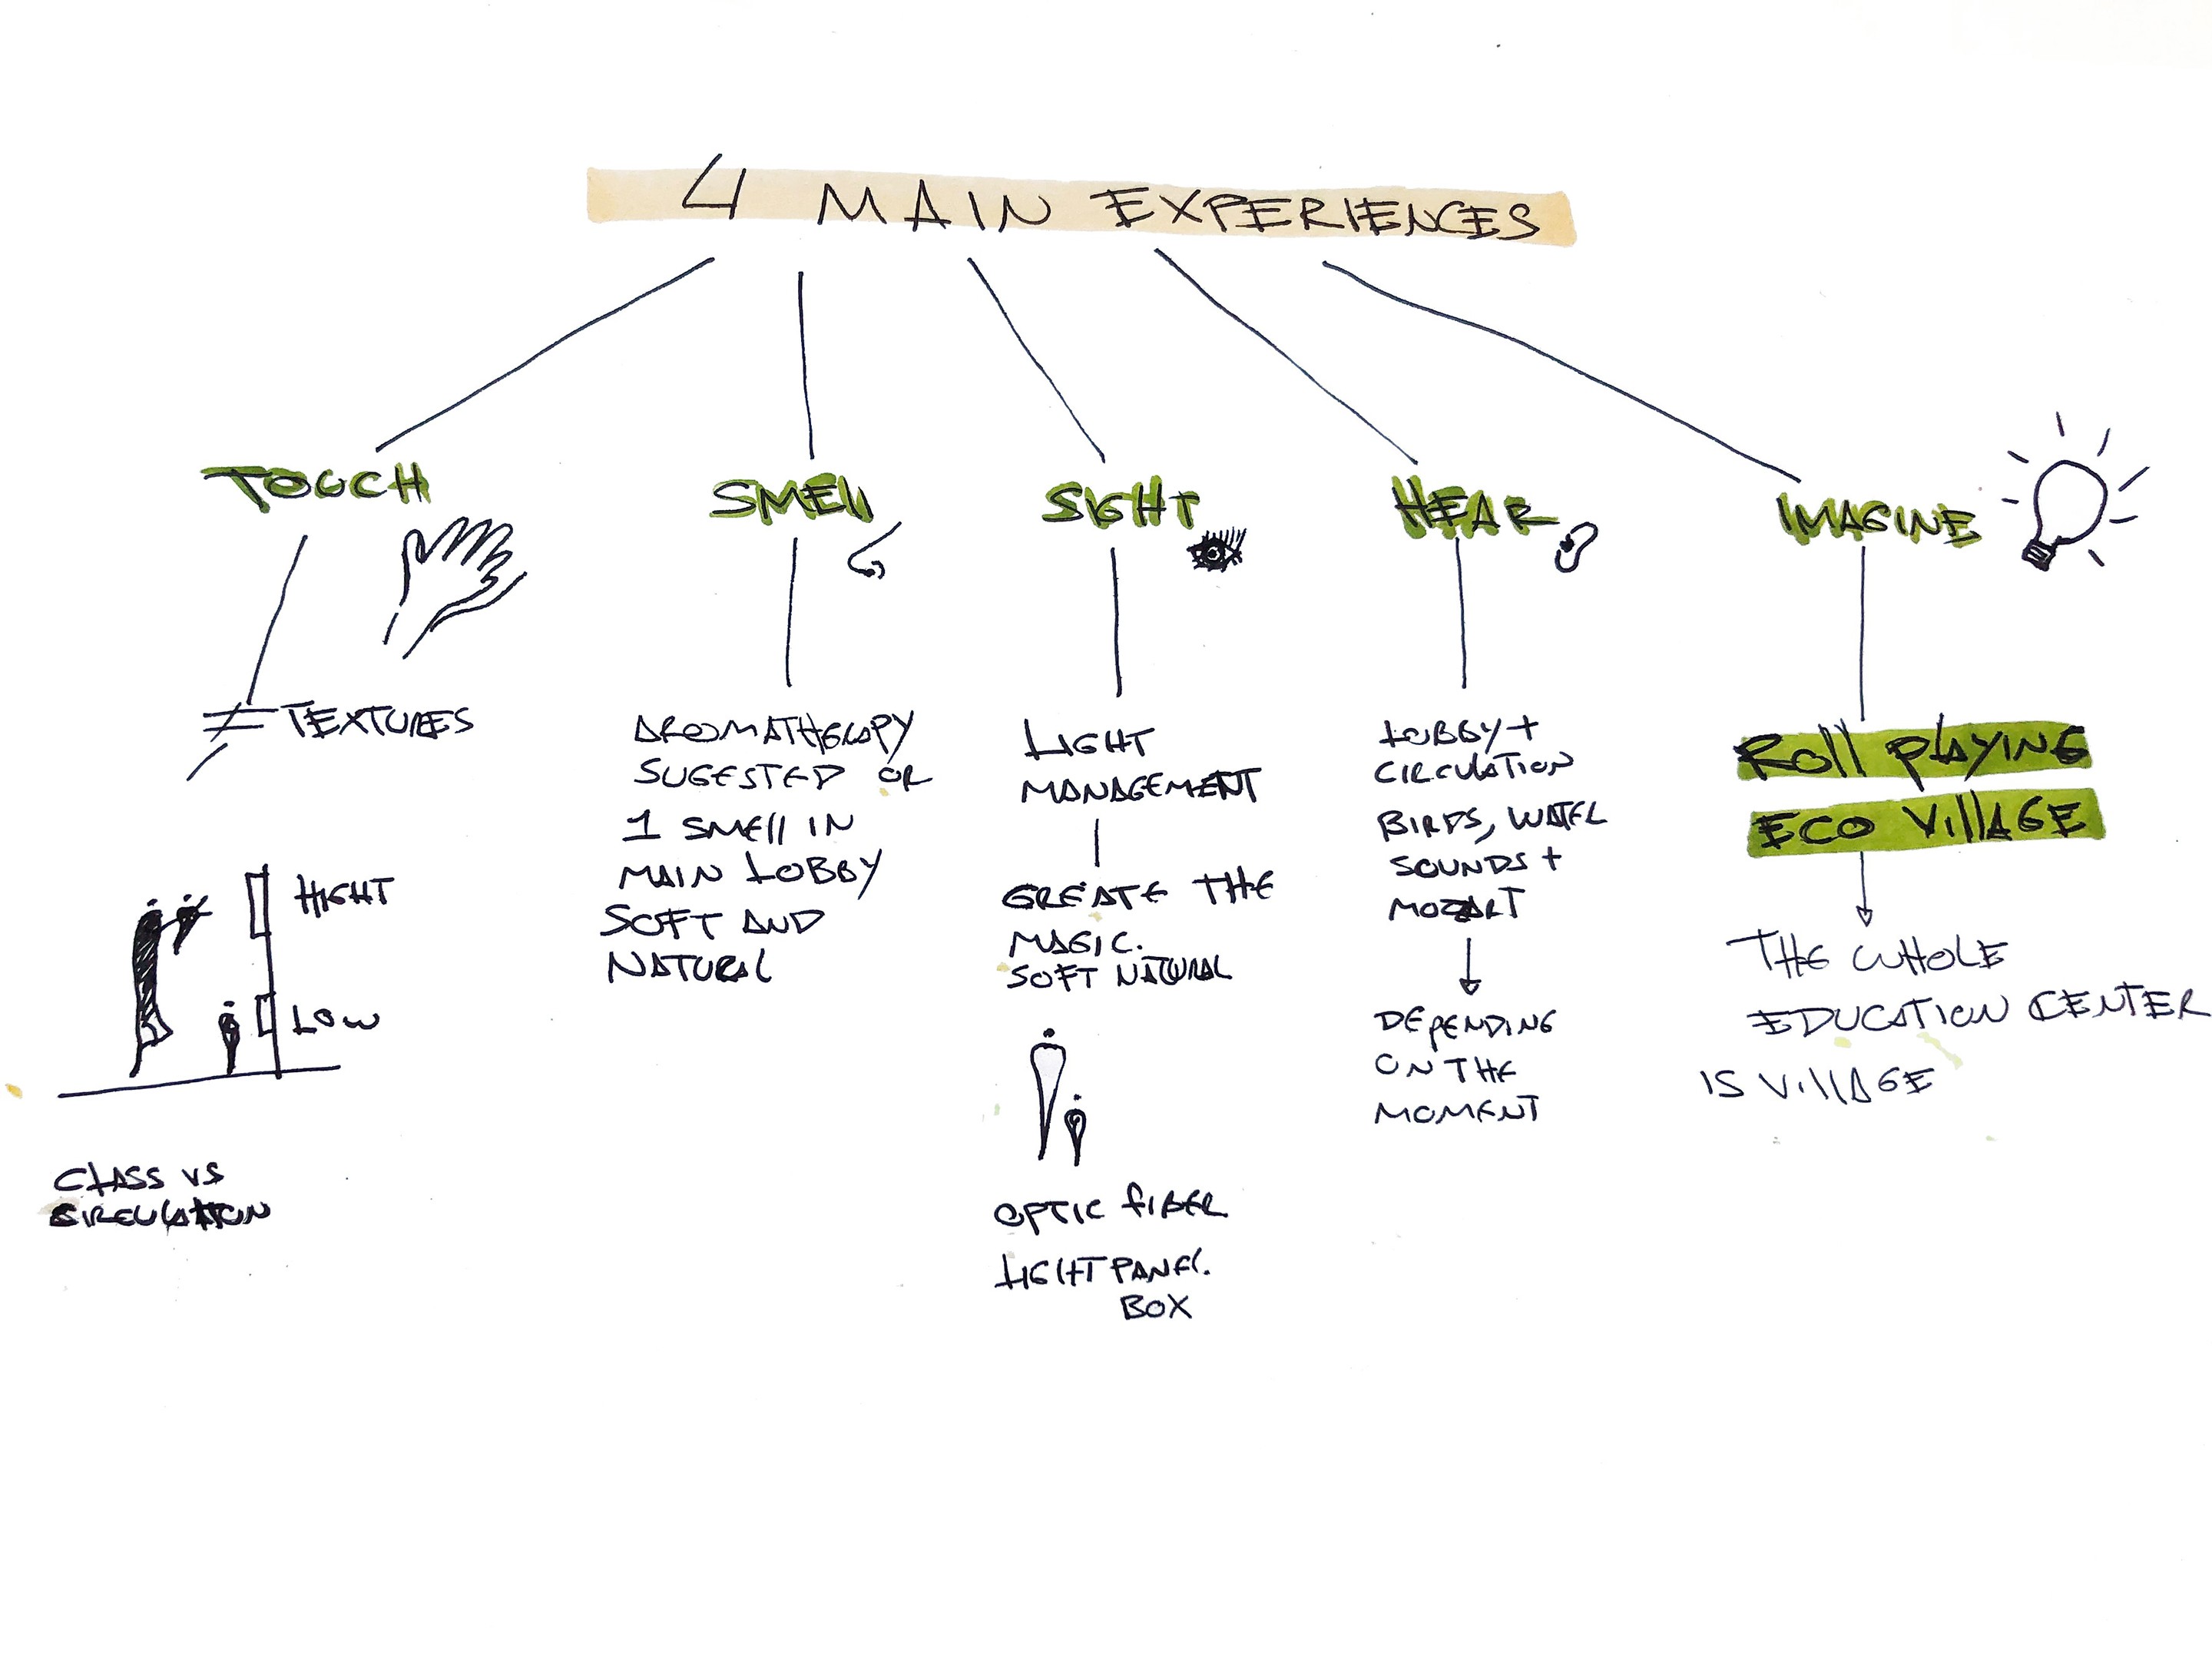 4 MAIN EXPERIENCES
TOUCH
≠ TEXTURES
HIGHT
LOW
CLASS VS
CIRCULATION
SMEll
AROMATHERAPY
SUGESTED OR
1 SMEll IN
MAIN LOBBY
SOFT AND
NATURAL
SIGHT
LIGHT
MANAGEMENT
CREATE THE
MAGIC.
SOFT NATURAL
OPTIC FIBER
LIGHT PANEL.
BOX
HEAR
LOBBY +
CIRCULATION
BIRDS, WATER
SOUNDS +
MOZART
DEPENDING
ON THE
MOMENT
IMAGINE
Roll PLAYING
ECO VillAGE
THE WHOLE
EDUCATION CENTER
IS VillAGE